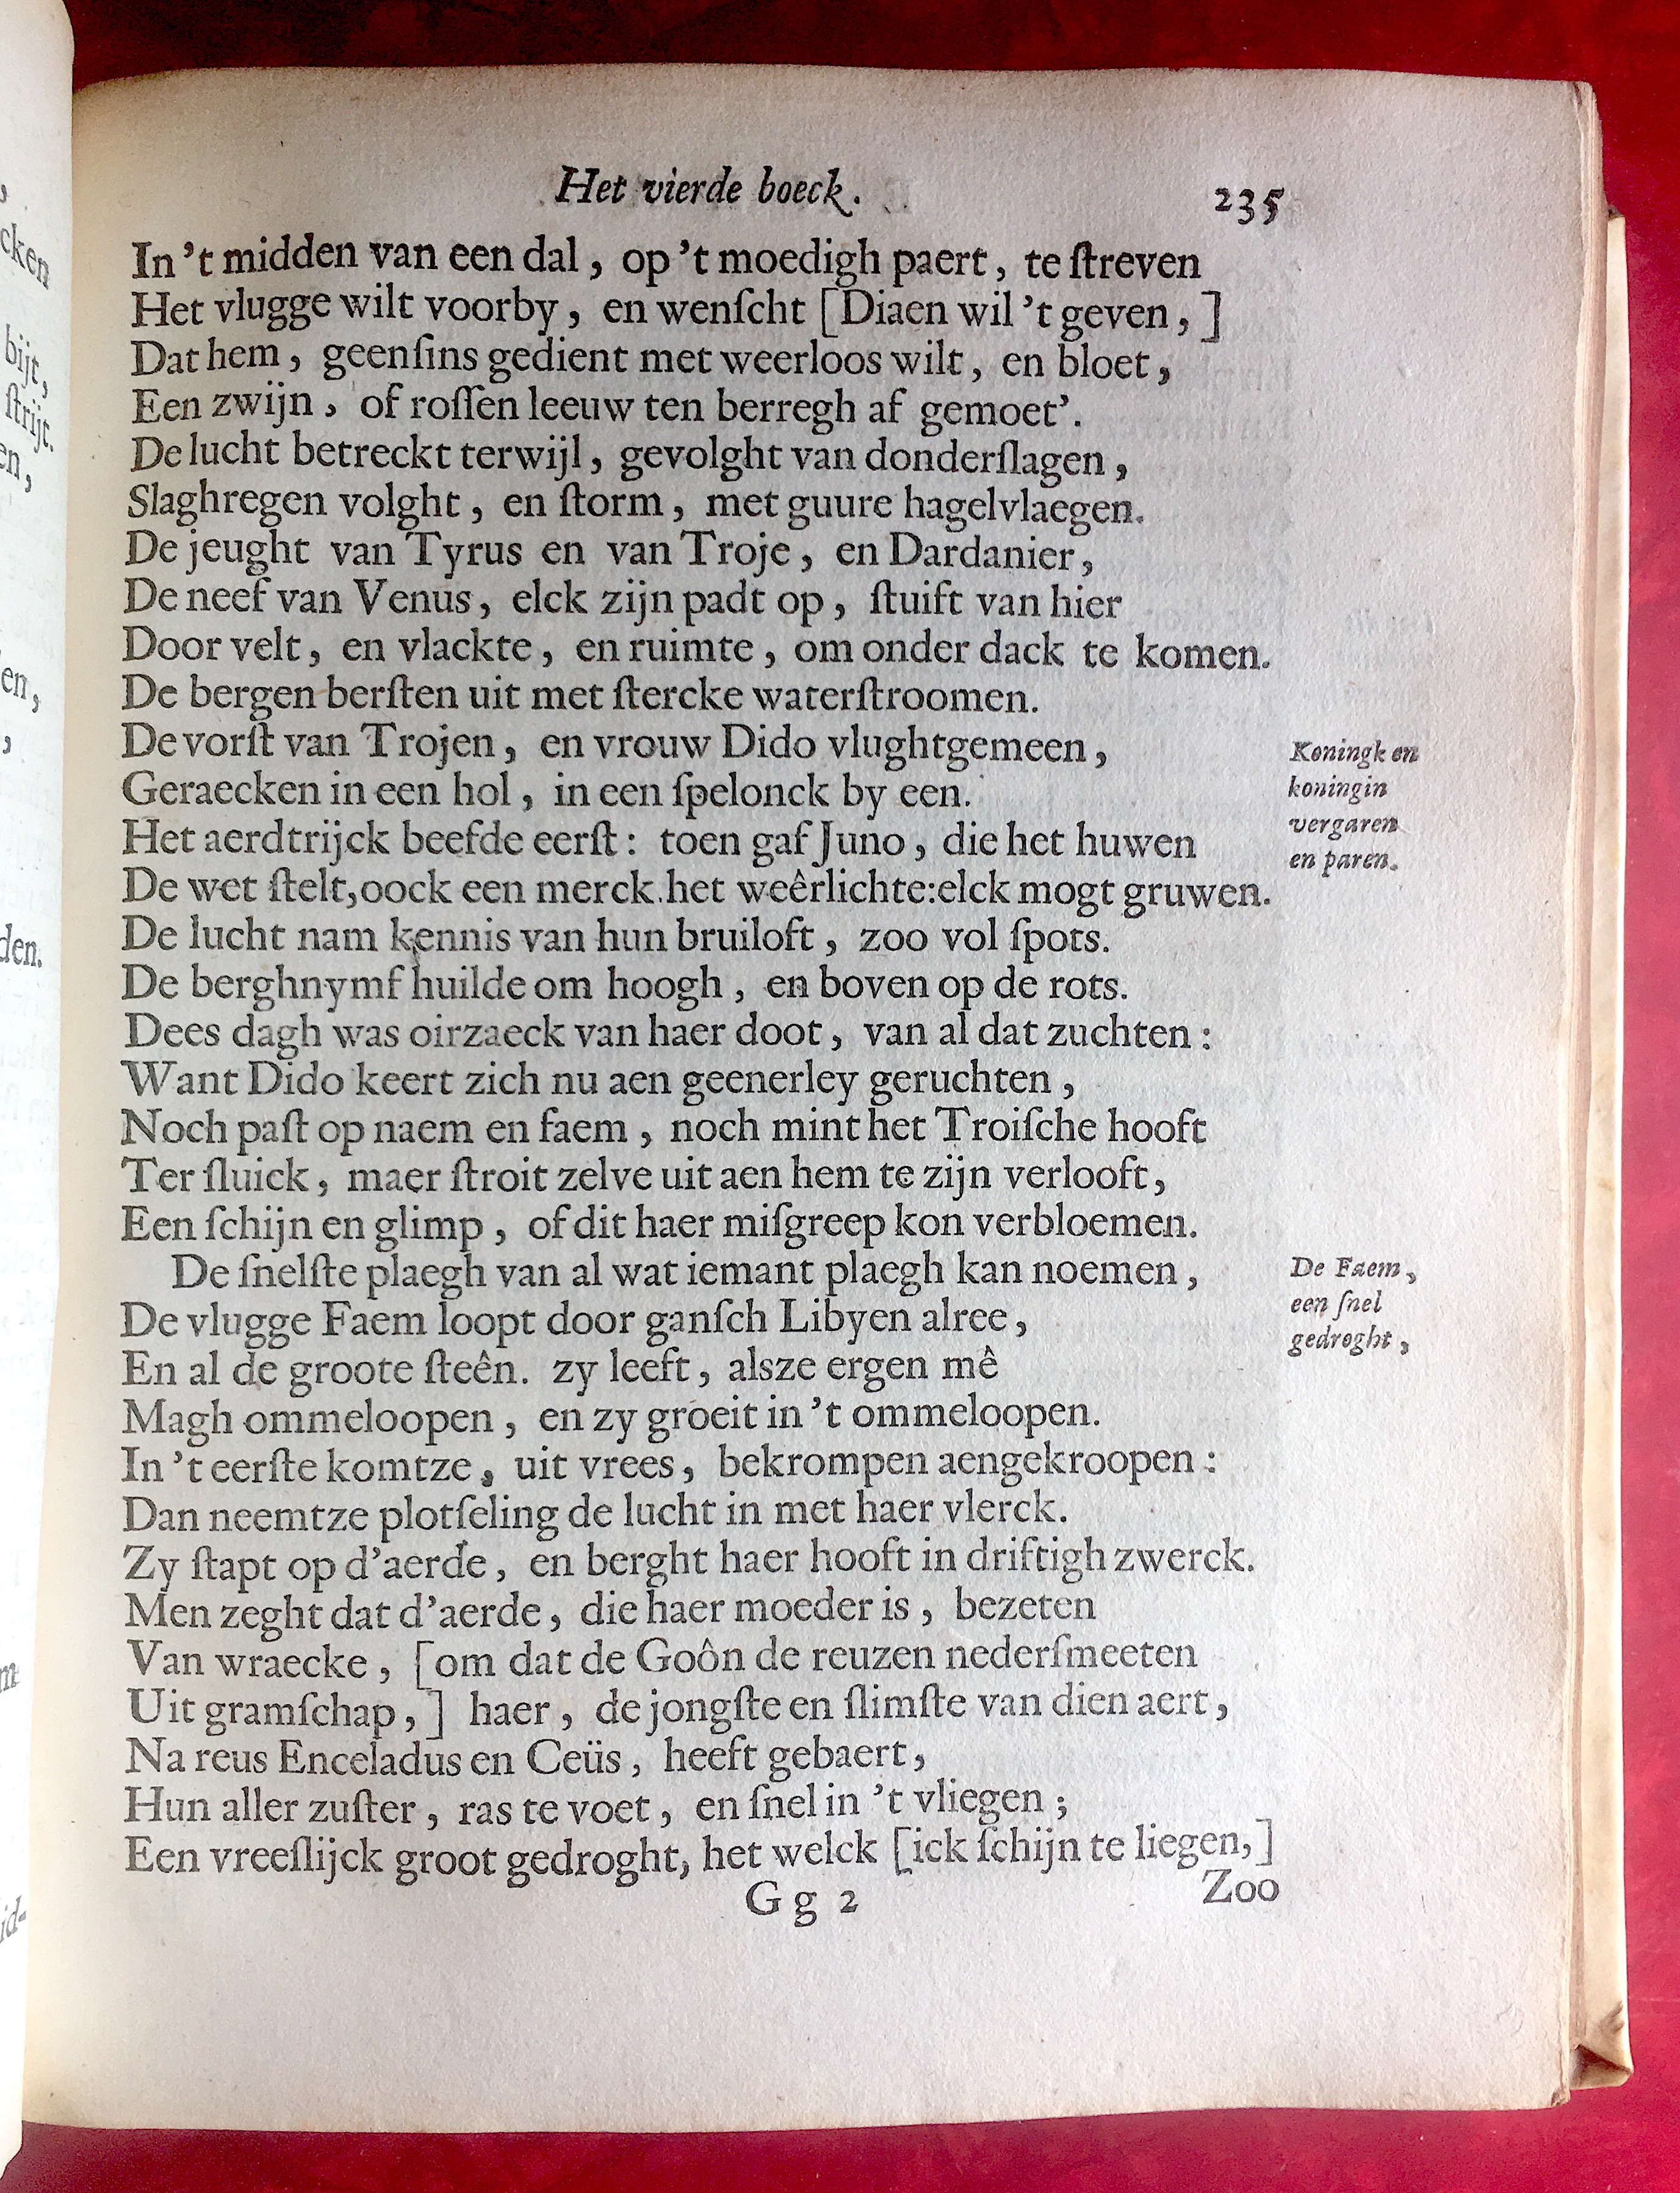 Het vierde boeck.
235
In 't midden van een dal, op 't moedigh paert, te ſtreven
Het vlugge wilt voorby, en wenſcht [Diaen wil 't geven,]
Dat hem, geenſins gedient met weerloos wilt, en bloet,
Een zwijn, of roſſen leeuw ten berregh af gemoet'.
De lucht betreckt terwijl, gevolght van donderſlagen,
Slaghregen volght, en ſtorm, met guure hagelvlaegen.
De jeught van Tyrus en van Troje, en Dardanier,
De neef van Venus, elck zijn padt op, ſtuift van hier
Door velt, en vlackte, en ruimte, om onder dack te komen.
De bergen berſten uit met ſtercke waterſtroomen.
De vorſt van Trojen, en vrouw Dido vlughtgemeen,
Geraecken in een hol, in een ſpelonck by een.
Het aerdtrijck beefde eerſt: toen gaf Juno, die het huwen
De wet ſtelt, oock een merck. het weêrlichte: elck mogt gruwen.
De lucht nam kennis van hun bruiloft, zoo vol ſpots.
De berghnymf huilde om hoogh, en boven op de rots.
Dees dagh was oirzaeck van haer doot, van al dat zuchten:
Want Dido keert zich nu aen geenerley geruchten,
Noch paſt op naem en faem, noch mint het Troiſche hooft
Ter ſluick, maer ſtroit zelve uit aen hem te zijn verlooft,
Een ſchijn en glimp, of dit haer miſgreep kon verbloemen.
De ſnelſte plaegh van al wat iemant plaegh kan noemen,
De vlugge Faem loopt door ganſch Libyen alree,
En al de groote ſteên. zy leeft, alsze ergen mê
Magh ommeloopen, en zy groeit in 't ommeloopen.
In 't eerſte komtze, uit vrees, bekrompen aengekroopen:
Dan neemtze plotſeling de lucht in met haer vlerck.
Zy ſtapt op d'aerde, en berght haer hooft in driftigh zwerck.
Men zeght dat d'aerde, die haer moeder is, bezeten
Van wraecke, [om dat de Goôn de reuzen nederſmeeten
Uit gramſchap,] haer, de jongſte en ſlimſte van dien aert,
Na reus Enceladus en Ceüs, heeft gebaert,
Hun aller zuſter, ras te voet, en ſnel in 't vliegen;
Een vreeſlijck groot gedroght, het welck [ick ſchijn te liegen,]
Gg 2
Zoo
Koningk en
koningin
vergaren
en paren.
De Faem,
een ſnel
gedroght,
cken
bijt,
ſtrijt.
en,
en,
den.